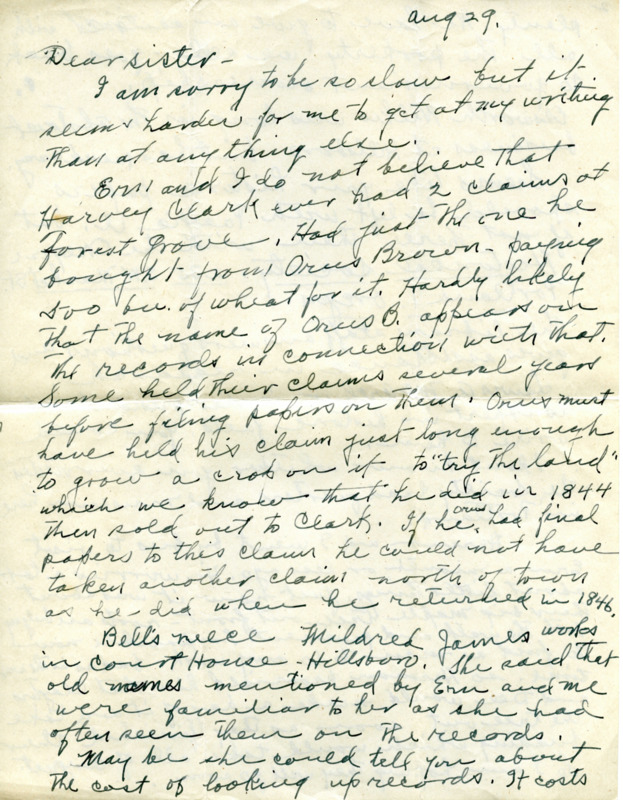 Aug 29.
Dear sister -
I am sorry to be so slow but it
seems harder for me to get at my writing
than at anything else.
Ern and I do not believe that
Harvey Clark ever had 2 claims at
forest grove. Had just the one he
bought from Orus Brown - paying
500 bu. of wheat for it. Hardly likely
that the name of Orus B. appears on
the records in connection with that.
Some held their claims several years
before filing papers on them. Orus must
have held his claim just long enough
to grow a crop on it to "try the land"
which we know that he did in 1844
then sold out to Clark. If he orus had final
papers to this claim he could not have
taken another claim north of town
as he did when he returned in 1846.
Bell's neece Mildred James works
in Court House - Hillsboro. She said that
old names mentioned by Ern and me
were familiar to her as she had
often seen them on the records.
May be she could tell you about
the cost of looking up records. It costs